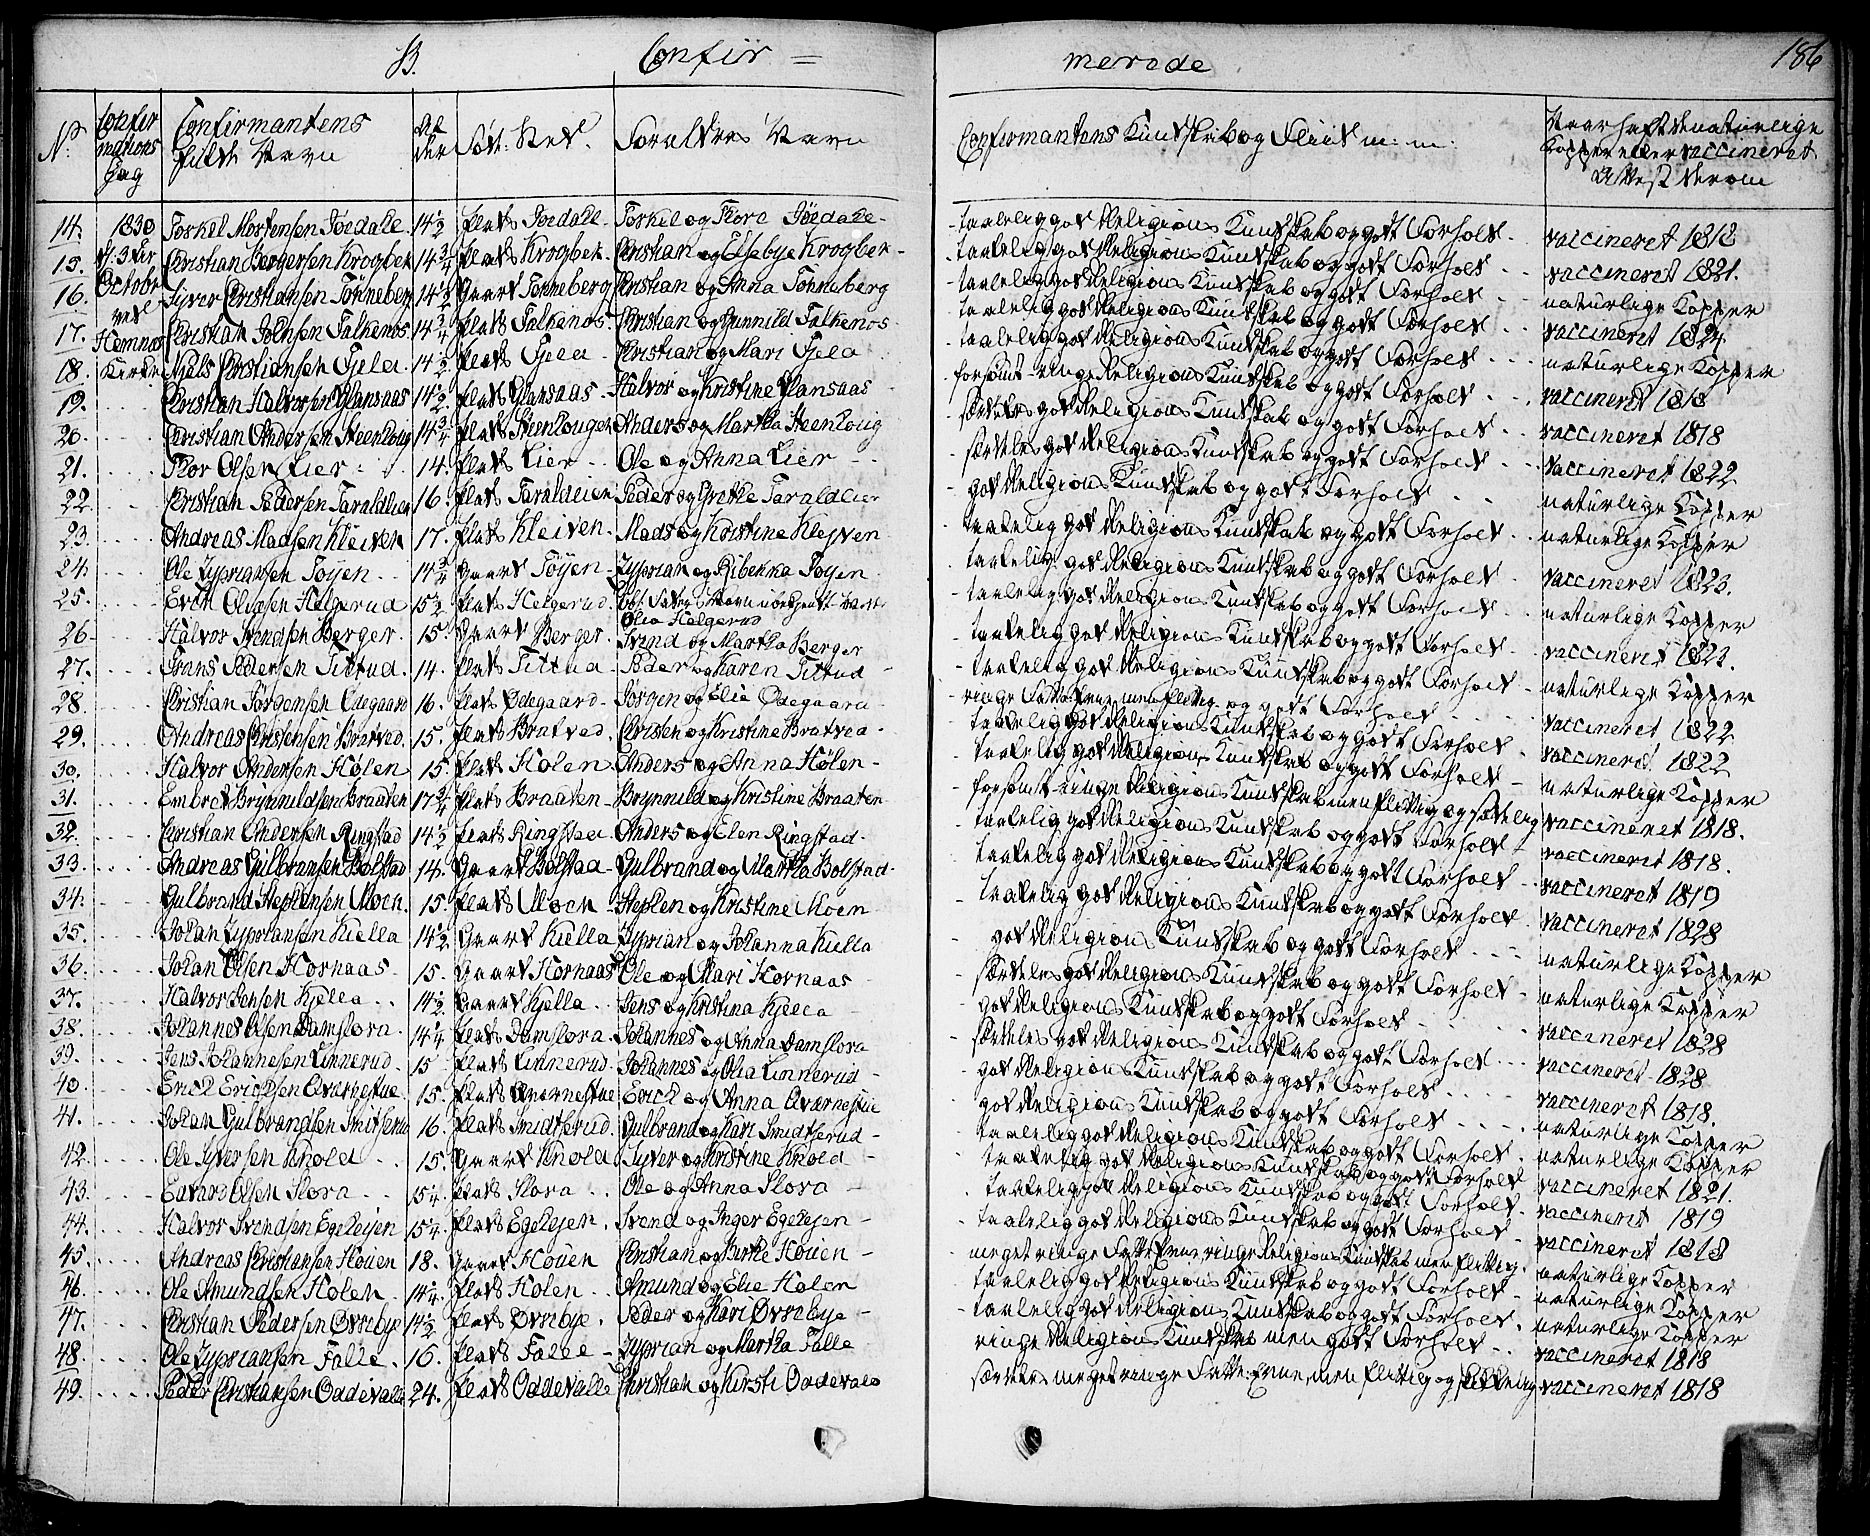 B. Confir = merede 186
No Confirmations Dag Confirmantens fulde Navn Alder Føde Sted. Foraldres Navn Confirmantens Kundskab og Fliid m: m: Naar hafte de naturlige Kopper eller vaccineret Attest derom
14. 1830 Torkel Mortensen Jördale 14½ Plads Jordale Torkel og Thore Jördale taalelig god Religions Kundskab og godt Forhold vaccineret 1818
15. d. 3die Christian Bergersen Krogbek 14¾ Plads Krogbek Christian og Elsebye Krogbek taalelig god Religions Kundskab og godt Forhold vaccineret 1821.
16. October Siver Christiansen Tønneberg 14½ Gaard Tønneberg Christian og Anna Tønneberg taalelig god Religions Kundskab og godt Forhold naturlige Kopper
17. ved Hemnæs Christian Johnsen Falkenos 14¾ Plads Falkenos Christian og Gunnild Falkenos taalelig god Religions Kundskab og godt Forhold vaccineret 1824
18. Kirke Niels Christiansen Fjela 14½ Plads Fjela Christian og Mari Fjela taalelig god Religions Kundskab og godt Forhold naturlige Kopper
19. Christian Halvorsen Glansaas 14½ Plads Glansaas Halvor og Kristine Glansaas forsømt ringe Religions Kundskab og godt Forhold vaccineret 1818
20. Christian Andersen Steenloug 14¾ Plads Steenlougen Anders og Martha Steenloug særdeles god Religions Kundskab og godt Forhold vaccineret 1818
21. Thor Olsen Lier 14. Plads Lier Ole og Anna Lier særdeles god Religions Kundskab og godt Forhold vaccineret 1822
22 Christian Pedersen Taraldlien 16. Plads Taraldlien Peder og Grethe Taraldlien god Religions Kundskab og godt Forhold naturlige Kopper
23. Andreas Madsen Kleiven 17. Plads Kleiven Mads og Kristine Klejven taalelig god Religions Kundskab og godt Forhold naturlige Kopper
24. Ole Zypriansen Töyen 14¾ Gaard Töyen Zyprian og Ribekka Toyen taalelig god Religions Kundskab og godt Forhold vaccineret 1823.
25. Even Olsen Helgerud 15½ Plads Helgerud Olia Helgerud taalelig god Religions Kundskab og godt Forhold naturlige Kopper
26 Halvor Svendsen Berger 15. Gaard Berger Svend og Martha Berger taalelig god Religions Kundskab og godt Forhold vaccineret 1823.
27. Frans Pedersen Tittud 14. Plads Tittud Peder og Karen Tittud taalelig god Religions Kundskab og godt Forhold naturlige Kopper
28. Christian Jörgensen Ödegaard 16. Plads Ödegaard Jörgen og Elie Ödegaard ringe Fatte Evne, men flittig og godt Forhold vaccineret 1822
29. Andreas Christensen Bratved. 15. Plads Bratved Christen og Kristine Bratved taalelig god Religions Kundskab og godt Forhold vaccineret 1822
30. Halvor Andersen Hölen 15. Plads Holen Anders og Anna Hölen taalelig god Religions Kundskab og godt Forhold naturlige Kopper
31. Embret Brynnildsen Braaten 17¾ Plads Braaten Brynnild og Kristine Braaten forsømt ringe Religions Kundskab men flittig og sædelig vaccineret 1818.
32. Christian Andersen Ringstad 14½ Plads Ringstad Anders og Elen Ringstad taalelig god Religions Kundskab og godt Forhold vaccineret 1818.
33. Andreas Gulbransen Bolstad 14. Gaard Bolstad Gulbrand og Martha Bolstad taalelig god Religions Kundskab og godt Forhold vaccineret 1819
34. Gulbrand Stephensen Moen. 15. Plads Moen Stephen og Kristine Moen taalelig god Religions Kundskab og godt Forhold vaccineret 1828
35. Johan Zypriansen Kiella 14½ Gaard Kiella Zyprian og Johanna Kiella god Religions Kundskab og godt Forhold naturlige Kopper
36. Johan Olsen Hornaas 15. Gaard Hornaas Ole og Mari Hornaas særdeles god Religions Kundskab og godt Forhold naturlige Kopper
37. Halvor Jensen Kjella 14½ Gaard Kjella Jens og Kristina Kjella god Religions Kundskab og godt Forhold vaccineret 1828
38. Johannes Olsen Damflora 14¼ Plads Damflora Johannes og Anna Damflora særdeles god Religions Kundskab og godt Forhold vaccineret 1828
39. Jens Johannesen Linnerud 15 Plads Linnerud Johannes og Olia Linnerud god Religions Kundskab og godt Forhold vaccineret 1818.
40. Erick Ericksen Qværnestue 15. Plads Qværnestue Erick og Anna Qværnestue god Religions Kundskab og godt Forhold naturlige Kopper
41. Johan Gulbrandsen Smitserud 16. Plads Smidtserud Gulbrand og Kari Smidtserud taalelig god Religions Kundskab og godt Forhold naturlige Kopper
42. Ole Syversen Knold 15. Gaard Knold Syver og Kristine Knold taalelig god Religions Kundskab og godt Forhold vaccineret 1821.
43. Edvard Olsen Flora 15¼ Plads Flora Ole og Anna Flora taalelig god Religions Kundskab og godt Forhold vaccineret 1819
44. Halvor Svendsen Egelejen 15¼ Plads Egelejen Svend og Inger Egelejen taalelig god Religions Kundskab og godt Forhold vaccineret 1818
45. Andreas Christiansen Höuen 18. Gaard Höuen Christian og Birthe Höuen meget ringe Fatte Evne, ringe Religions Kundskab men flittig. naturlige Kopper
46. Ole Amundsen Holen 14¼ Plads Holen Amund og Elie Holen taalelig god Religions Kundskab og godt Forhold naturlige Kopper
47. Christian Pedersen Øvrebye 14½ Plads Øvrebye Peder og Kari Øvrebye taalelig god Religions Kundskab og godt Forhold naturlige Kopper
48. Ole Zypriansen Falle 16. Plads Falle Zyprian og Martha Falle ringe Religions Kundskab men godt Forhold vaccineret 1818
49. Peder Christiansen Oddevald 24. Plads Oddevalle Christian og Kirsti Oddevald særdeles meget ringe Fatte Evne, men flittig og sædelig vaccineret 1818